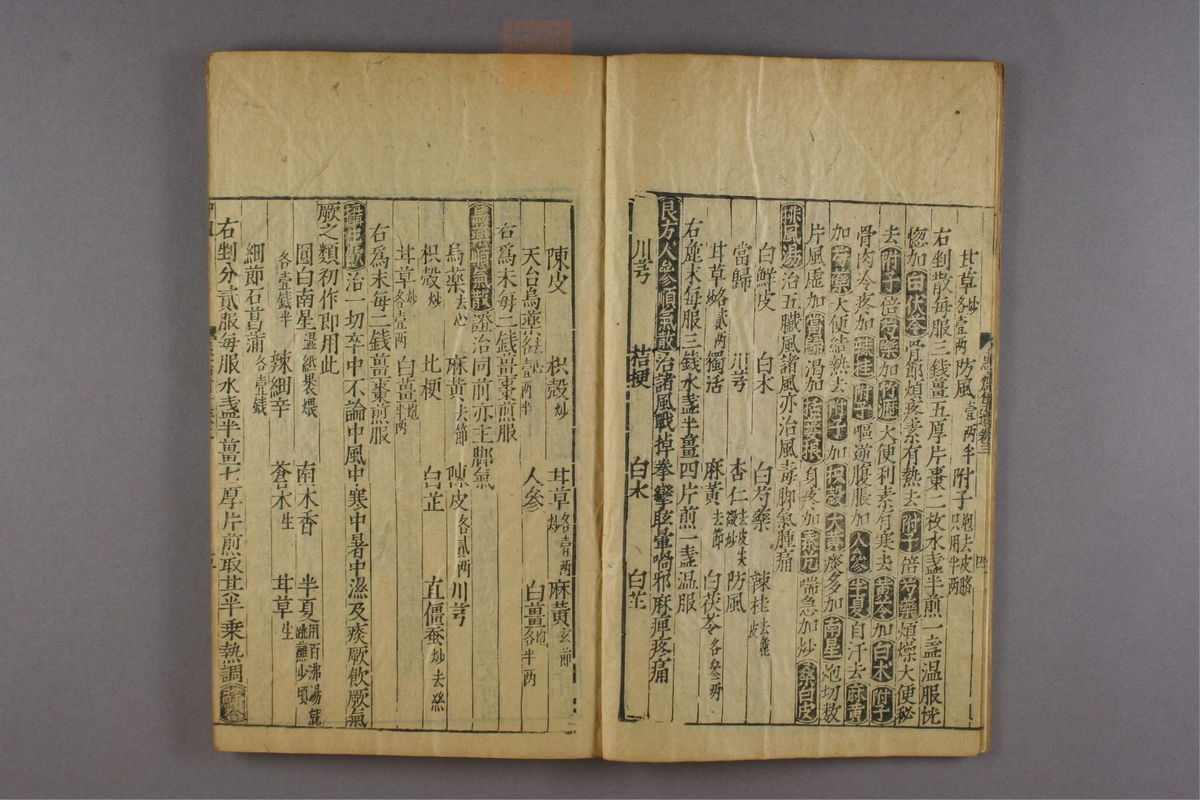 甘草炒各壹兩防風壹兩半附子炮去皮臍只用半兩
右剉散每服三錢薑五厚片棗二枚水盞半煎一盞温服恍
惚加白茯苓骨節煩疼素有熱去附子倍芍藥煩燥大便秘
去附子倍芍藥加竹瀝大便利素有寒去黄芩加白朮附子
骨肉冷疼加辣桂附子嘔逆腹脹加人參半夏自汗去麻黄
加芍藥大便結熱去附子加枳殼大黄痰多加南星炮切数
片風虚加當歸渴加栝蔞根身疼加秦艽喘急加炒桑白皮
排風湯治五臟風諸風亦治風毒脚氣腫痛
白鮮皮 白朮 白芍藥 辣桂去麄皮
當歸 川芎 杏仁去皮尖微炒 防風
甘草炒各貳兩 獨活 麻黄去節 白茯苓各參兩
右麄末每服三錢水盞半薑四片煎一盞温服
良方人參順氣散治諸風戰掉拳攣眩暈喎邪麻痺疼痛
川芎 桔梗 白朮 白芷
陳皮 枳殼炒 甘草炒各壹兩 麻黄去節
天台烏藥去心各壹兩半 人參 白薑炮各半兩
右爲末每二錢薑棗煎服
烏藥順氣散證治同前亦主脚氣
烏藥去心 麻黄去節 陳皮各貳兩 川芎
枳殼炒 桔梗 白芷 直僵蚕炒去絲
甘草炒各壹兩 白薑炮半兩
右爲末每二錢薑棗煎服
攝中散治一切卒中不論中風中寒中暑中濕及痰厥飲厥氣
厥之類初作即用此
圓白南星濕紙裹煨 南木香 半夏用百沸湯就銚蘸少頃
各壹錢半 辣細辛 蒼朮生 甘草生
細節石菖蒲各壹錢
右剉分貳服每服水盞半薑七厚片煎取其半乗熱調